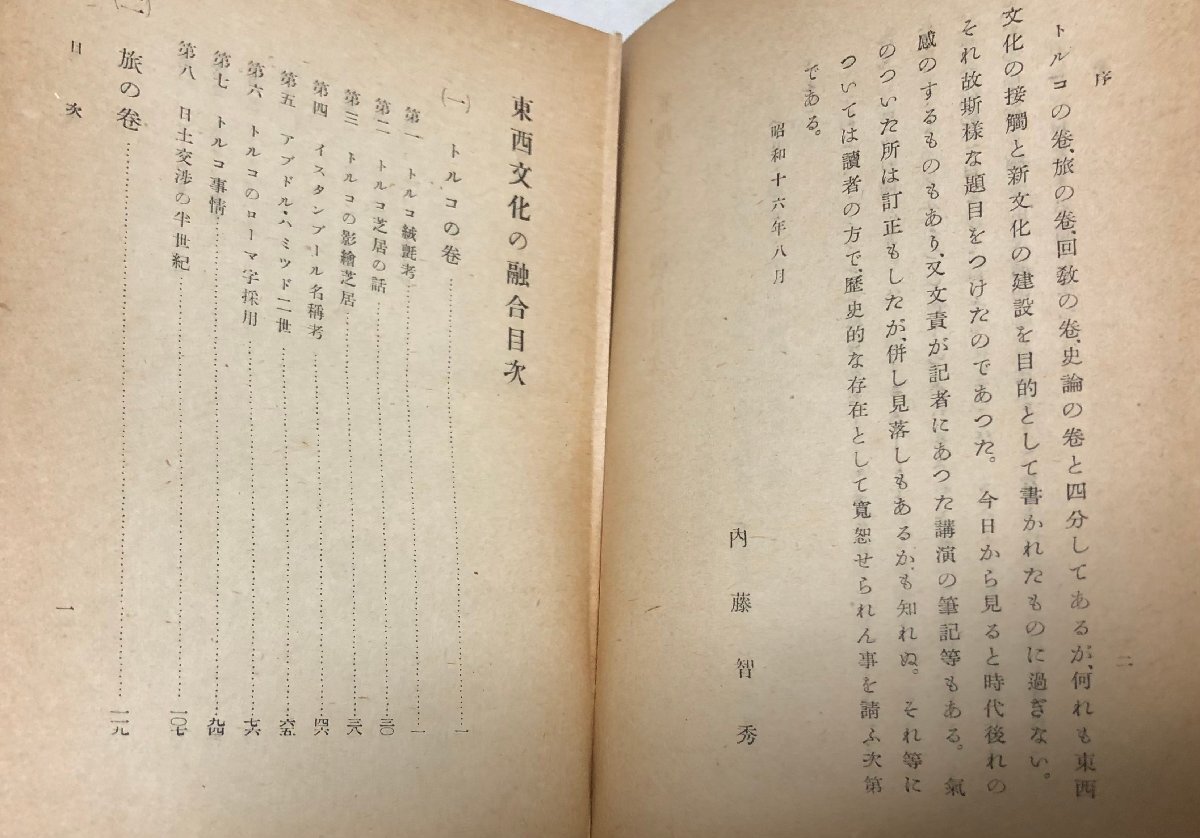 序
二
トルコの卷、旅の卷、回敎の卷、史論の卷と四分してあるが、何れも東西
文化の接觸と新文化の建設を目的として書かれたものに過ぎない。
それ故斯樣な題目をつけたのであつた。今日から見ると時代後れの
感のするものもあり、又文責が記者にあつた講演の筆記等もある。氣
のついた所は訂正もしたが、併し見落しもあるかも知れぬ。それ等に
ついては讀者の方で、歷史的な存在として寬恕せられん事を請ふ次第
である。
昭和十六年八月
內藤智秀
東西文化の融合目次
(一) トルコの卷……一
第一 トルコ絨氈考……一
第二 トルコ芝居の話……二〇
第三 トルコの影繪芝居……三八
第四 イスタンブール名稱考……四六
第五 アブドル・ハミツド二世……六五
第六 トルコのローマ字採用……七六
第七 トルコ事情……九四
第八 日土交涉の半世紀……一〇七
(二) 旅の卷……一一九
目次
一